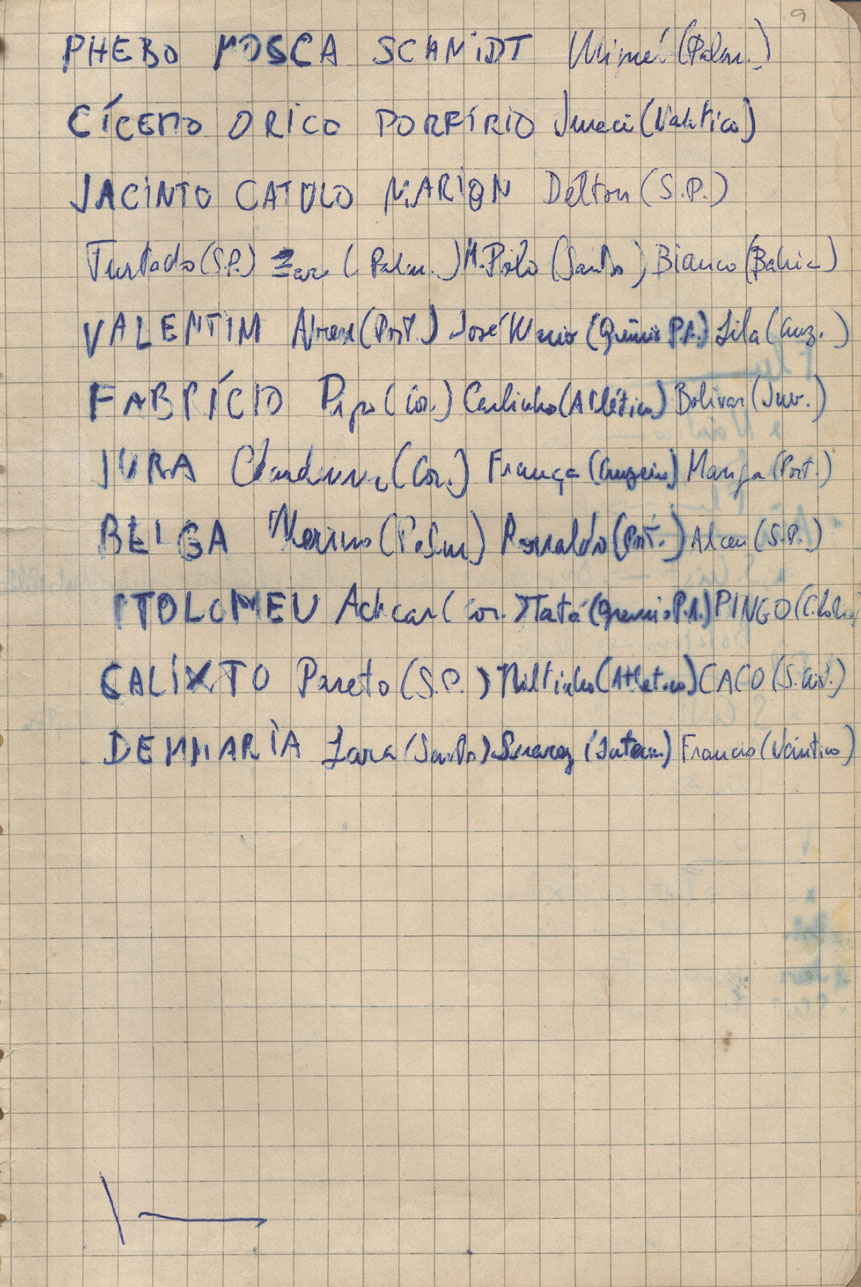 9
PHEBO MOSCA SCHMIDT Mimi (Palm.)
CÍCERO ORICO PORFÍRIO Juraci (Naútico)
JACINTO CATULO MARION Delton (S.P.)
Furtado (S.P.) (Palm.) M. Polo (Santos) Bianco (Bahia)
VALENTIM (Port.) José Mario (Grêmio P.A.) Lila (Cruz.)
FABRÍCIO (Cor.) Carlinho (Atlético) Bolívar (Juv.)
JURA (Cor.) França (Cruzeiro) Manga (Port.)
BELGA Marino (Palm) Ronaldo (Port.) Alceu (S.P.)
PTOLOMEU (Cor. Natá (Gremio P.A.) PINGO
CALIXTO Pareto (S.P.) Niltinho (Atlético) CACO (S. Cris.)
DEMMARIA Lara (Santos) Suarez (Intern.) Francis (Náutico)